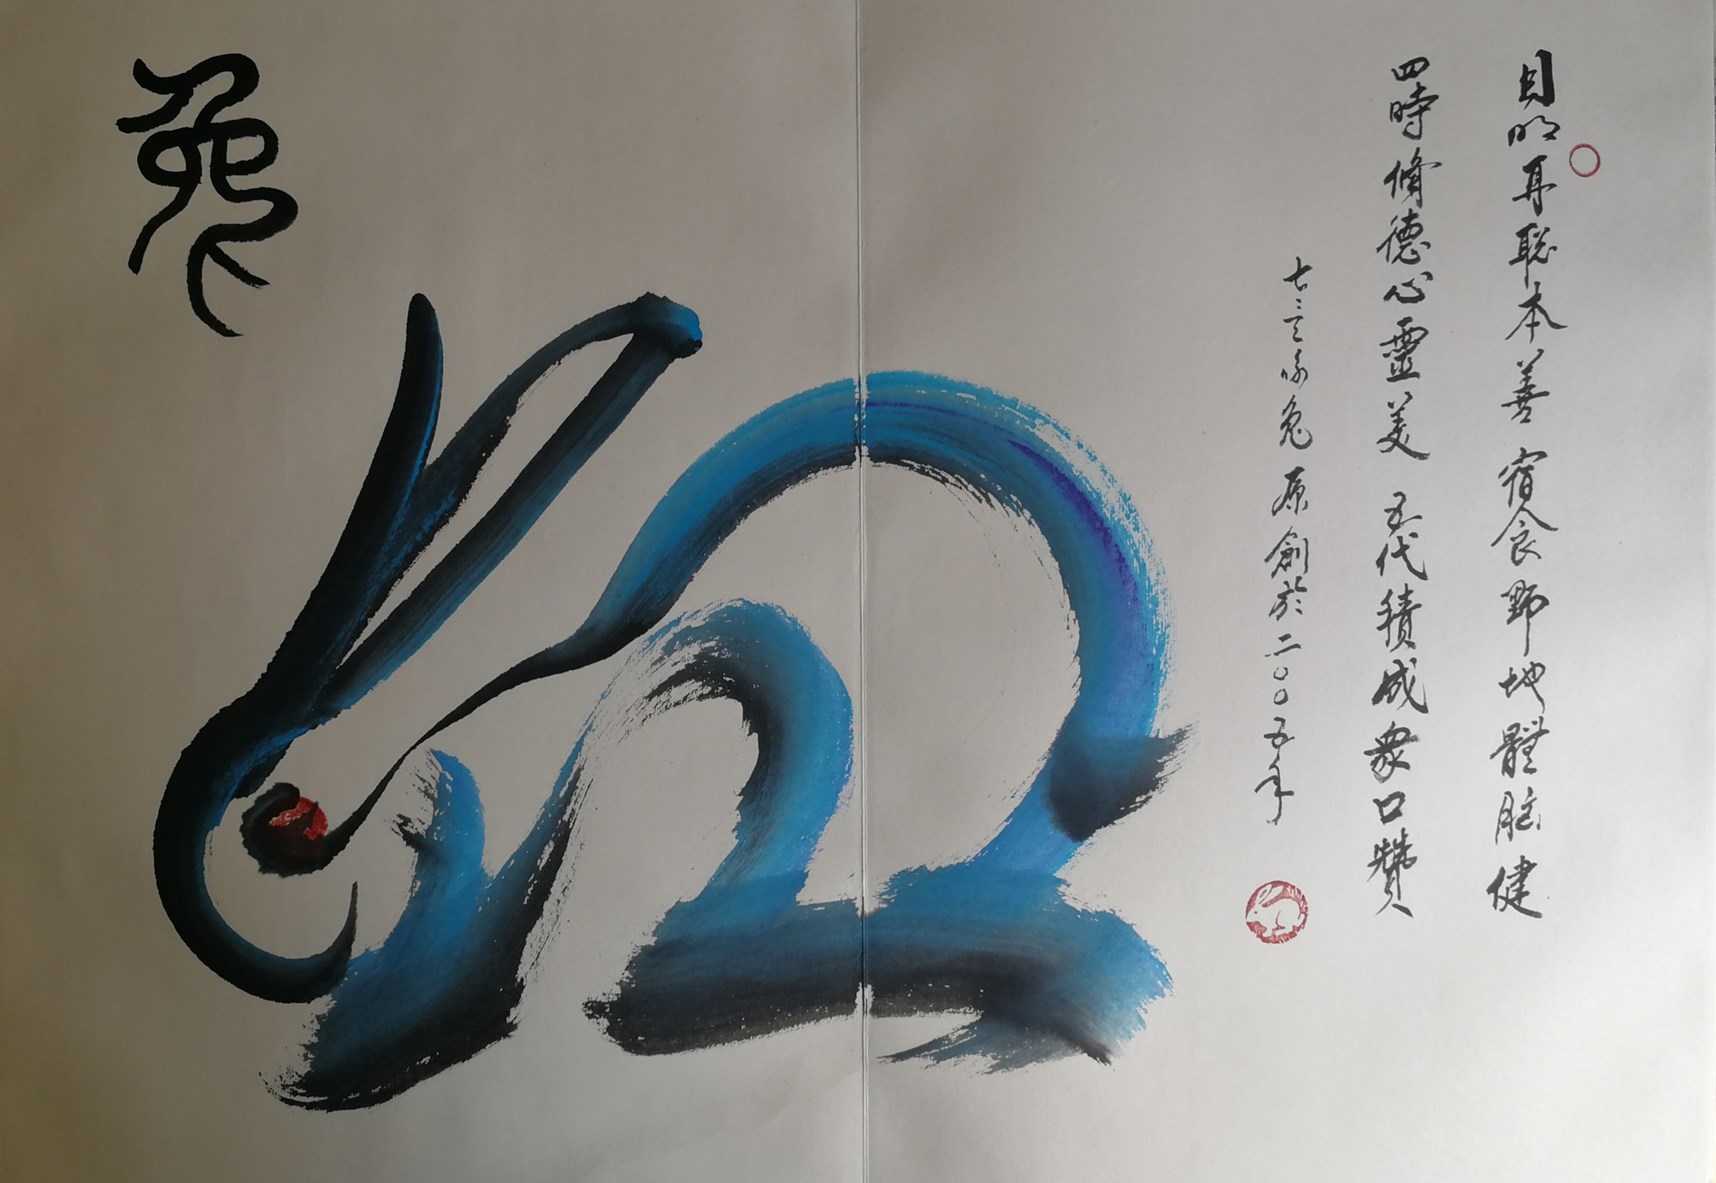 目明耳聡本善 宿食野地體脳健
四時脩德心靈美 五代積成衆口贊
七言詠兔 原創於二〇〇五年
兔